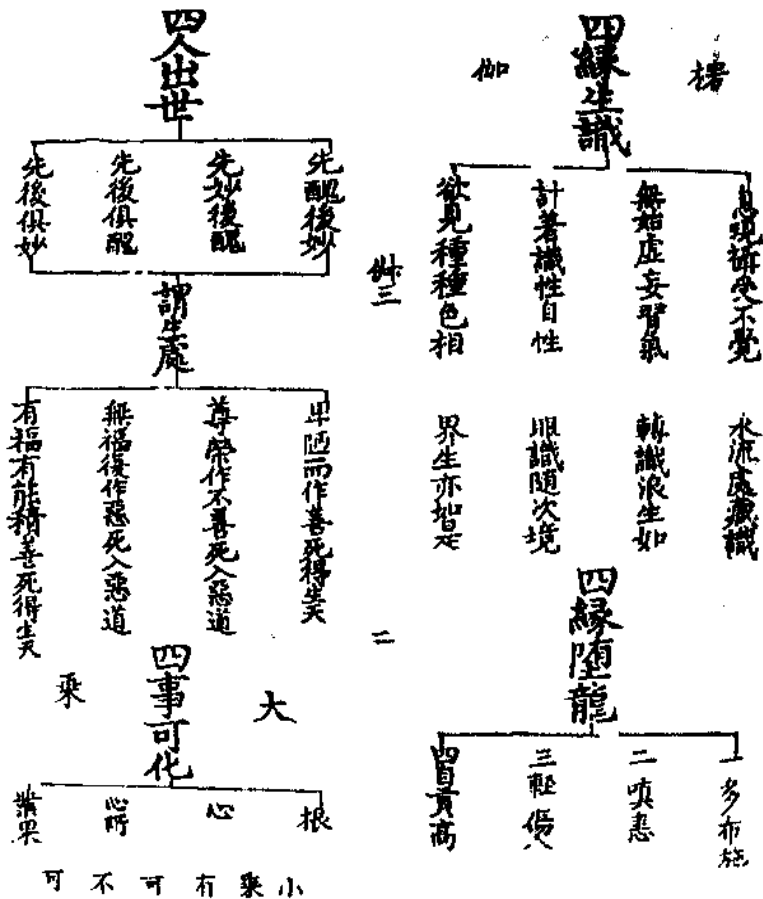 楞伽
四緣生識
自現攝受不覺
無始虛妄習氣
計著識性自性
欲見種種色相
水流處藏識
轉識浪生如
眼識隨次境
界生亦如是
四緣墮龍
一多布施
二嗔恚
三輕傷人
四自貢高
三
二
四人出世
先醜後妙
先妙後醜
先後俱醜
先後俱妙
謂生處
卑陋而作善死得生天
尊榮作不善死入惡道
無福復作惡死入惡道
有福有能積善死得生天
大乘
四事可化
根
心
心所
業果
小乘有可不可